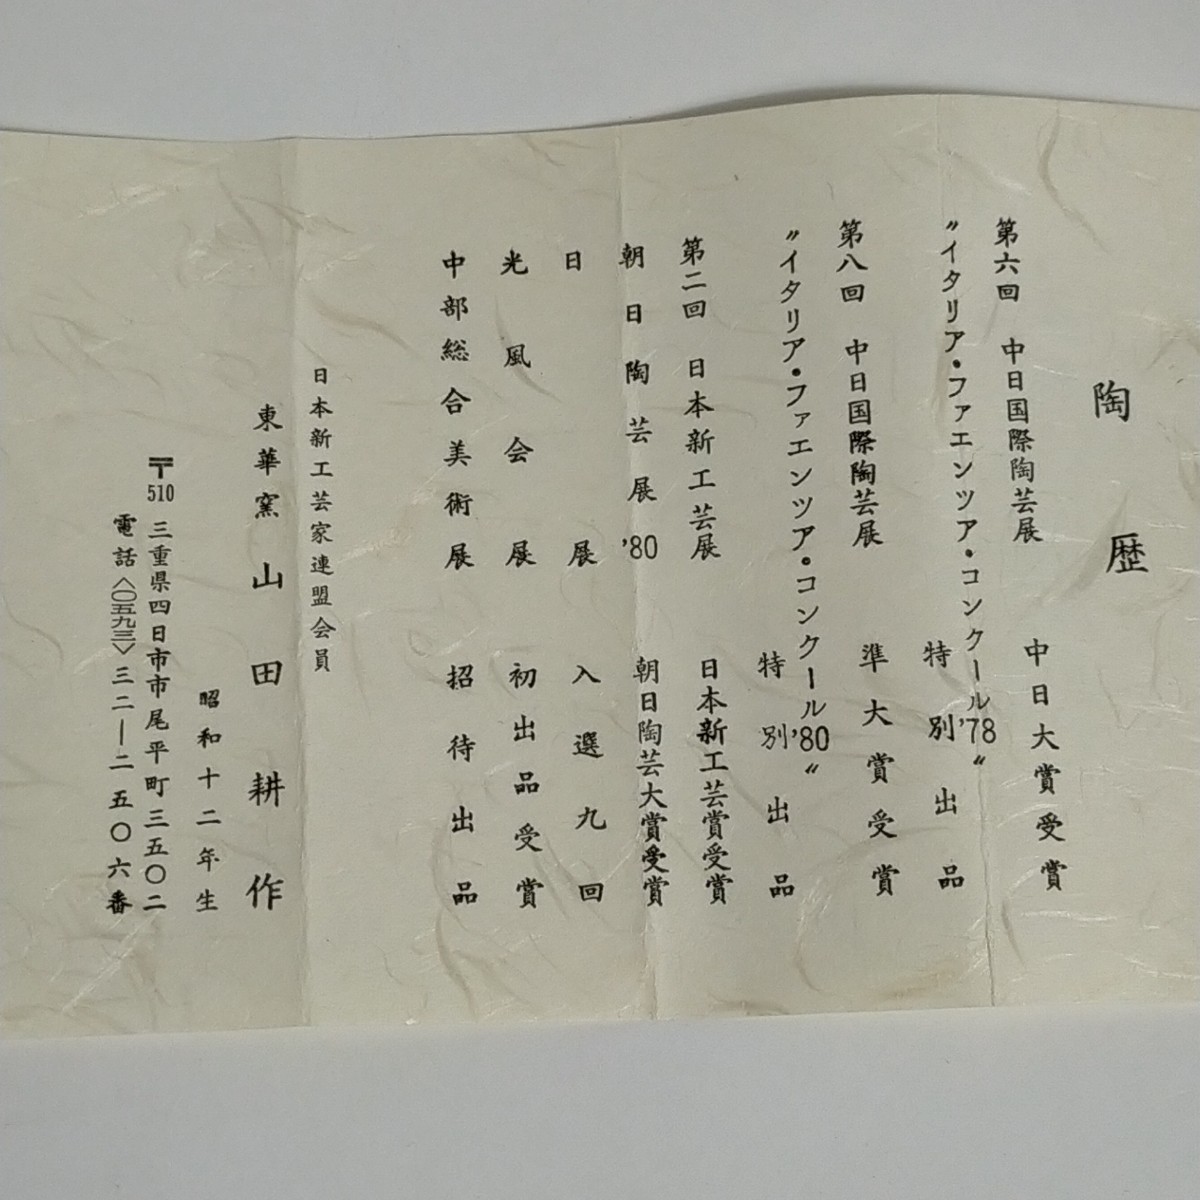 陶歴
第六回 中日国際陶芸展 中日大賞受賞
〝イタリア・ファエンツア・コンクール'78〟 特別出品
第八回 中日国際陶芸展 準大賞受賞
〝イタリア・ファエンツア・コンクール'80〟 特別出品
第二回 日本新工芸展 日本新工芸賞受賞
朝日陶芸展'80 朝日陶芸大賞受賞
日展 入選九回
光風会展 初出品受賞
中部総合美術展 招待出品
日本新工芸家連盟会員
東華窯 山田耕作
昭和十二年生
〒510 三重県四日市市尾平町三五〇二
電話〈〇五九三〉三二―二五〇六番